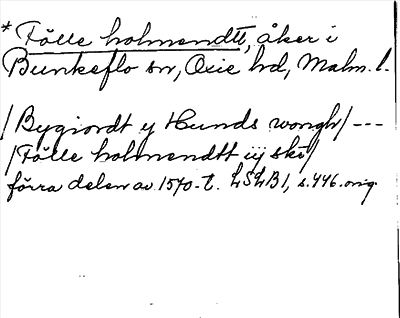 * Fölle holmendtt, åker i
Bunkeflo sn, Oxie hd, Malm. l.
/Bygiordt y Hunds wongh/ ---
/Fölle holmendtt iij ski/
förra delen av 1570-t. LSLB1, s. 446. orig.